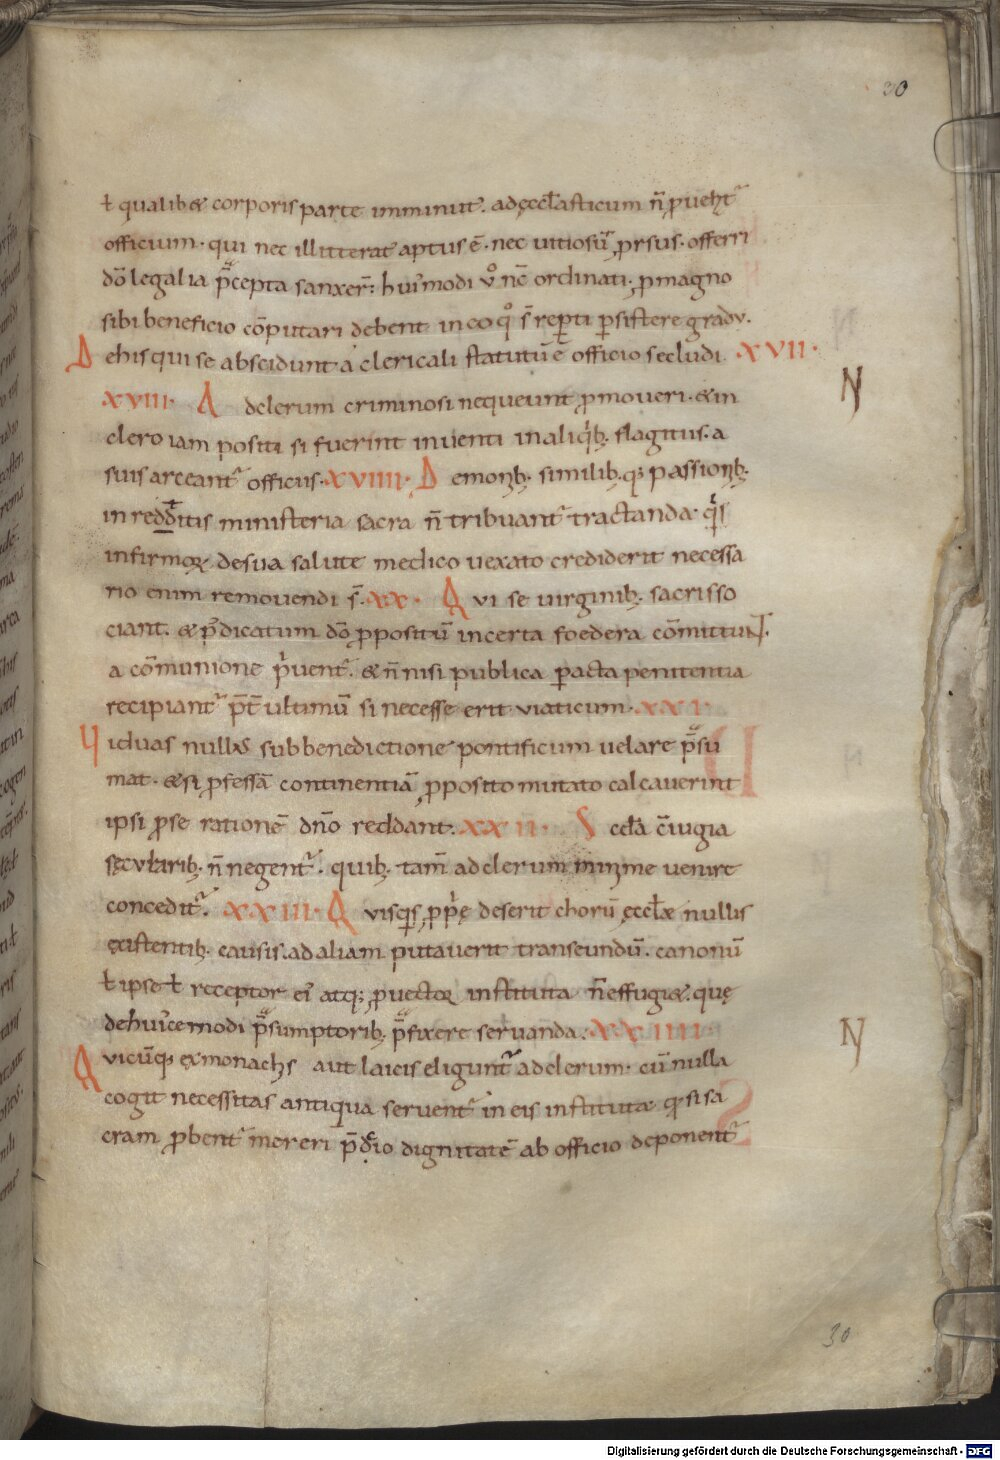 30
ł qualib& corporis parte imminut᷑. ad ęccłasticum n̄ ꝓueht᷑
officium · qui nec illitterat᷒ aptus ē · nec uitiosū ꝓrsus · offerri
dō legalia p̄cepta sanxer̄: hui᷒modi ů nc̄ ordinati · pro magno
sibi beneficio cōputari debent in eo qͦ s̄ reꝑti ꝑsistere gradu.
De his qui se abscidunt a clericali statutū ē officio secludi · XVII ·
XVIII · Ad clerum criminosi nequeunt ꝓmoueri · & in
clero iam positi si fuerint inuenti in aliqͥb; flagitiis · a
suis arceant᷑ officiis · XVIIII · Demonib; similib; q; passionib;
inredditis ministeria sacra n̄ tribuant᷑ tractanda · qͥs
infirmoꝝ de sua salute medico uexato crediderit necessa
rio enim remouendi s̄ · XX · Qui se uirginib; sacris so
ciant. & p̄dicatum dō ꝓpositū incerta foedera cōmittunt.
a cōmunione pͥuent᷑. & n̄ nisi publica ꝑacta penitentia
recipiant᷑ p̄t̄ ultimū si necesse erit uiaticum · XXI ·
Uiduas nullus sub benedictione pontificum uelare p̄su
mat · & si ꝓfessā continentiā ꝓposito mutato calcauerint
ipsi ꝓ se rationē dn̄o reddant. XXII · Scd̄a c̄iugia
sęcłarib; n̄ negent᷑. quib; tam̄ ad clerum minime uenire
concedit᷑. XXIII · Quisqͥs ꝓpͥę deserit chorū ęccłæ nullis
existentib; causis. ad aliam putauerit transeundū. canonū
ł ipse ł receptor ei᷒ atq; ꝓuectoꝝ instituta n̄ effugi&. quę
de hui᷒cemodi p̄sumptorib; p̄fixere seruanda: XXIIII ·
Quicūq; ex monachis aut laicis eligunt᷑ ad clerum · cū nulla
cogit necessitas antiqua seruent᷑ in eis instituta · q̄ si sa
cram ꝓbent᷑ mereri p̄dc̄io dignitatē ab officio deponent᷑
N
N
30
Digitalisierung gefördert durch die Deutsche Forschungsgemeinschaft - DFG